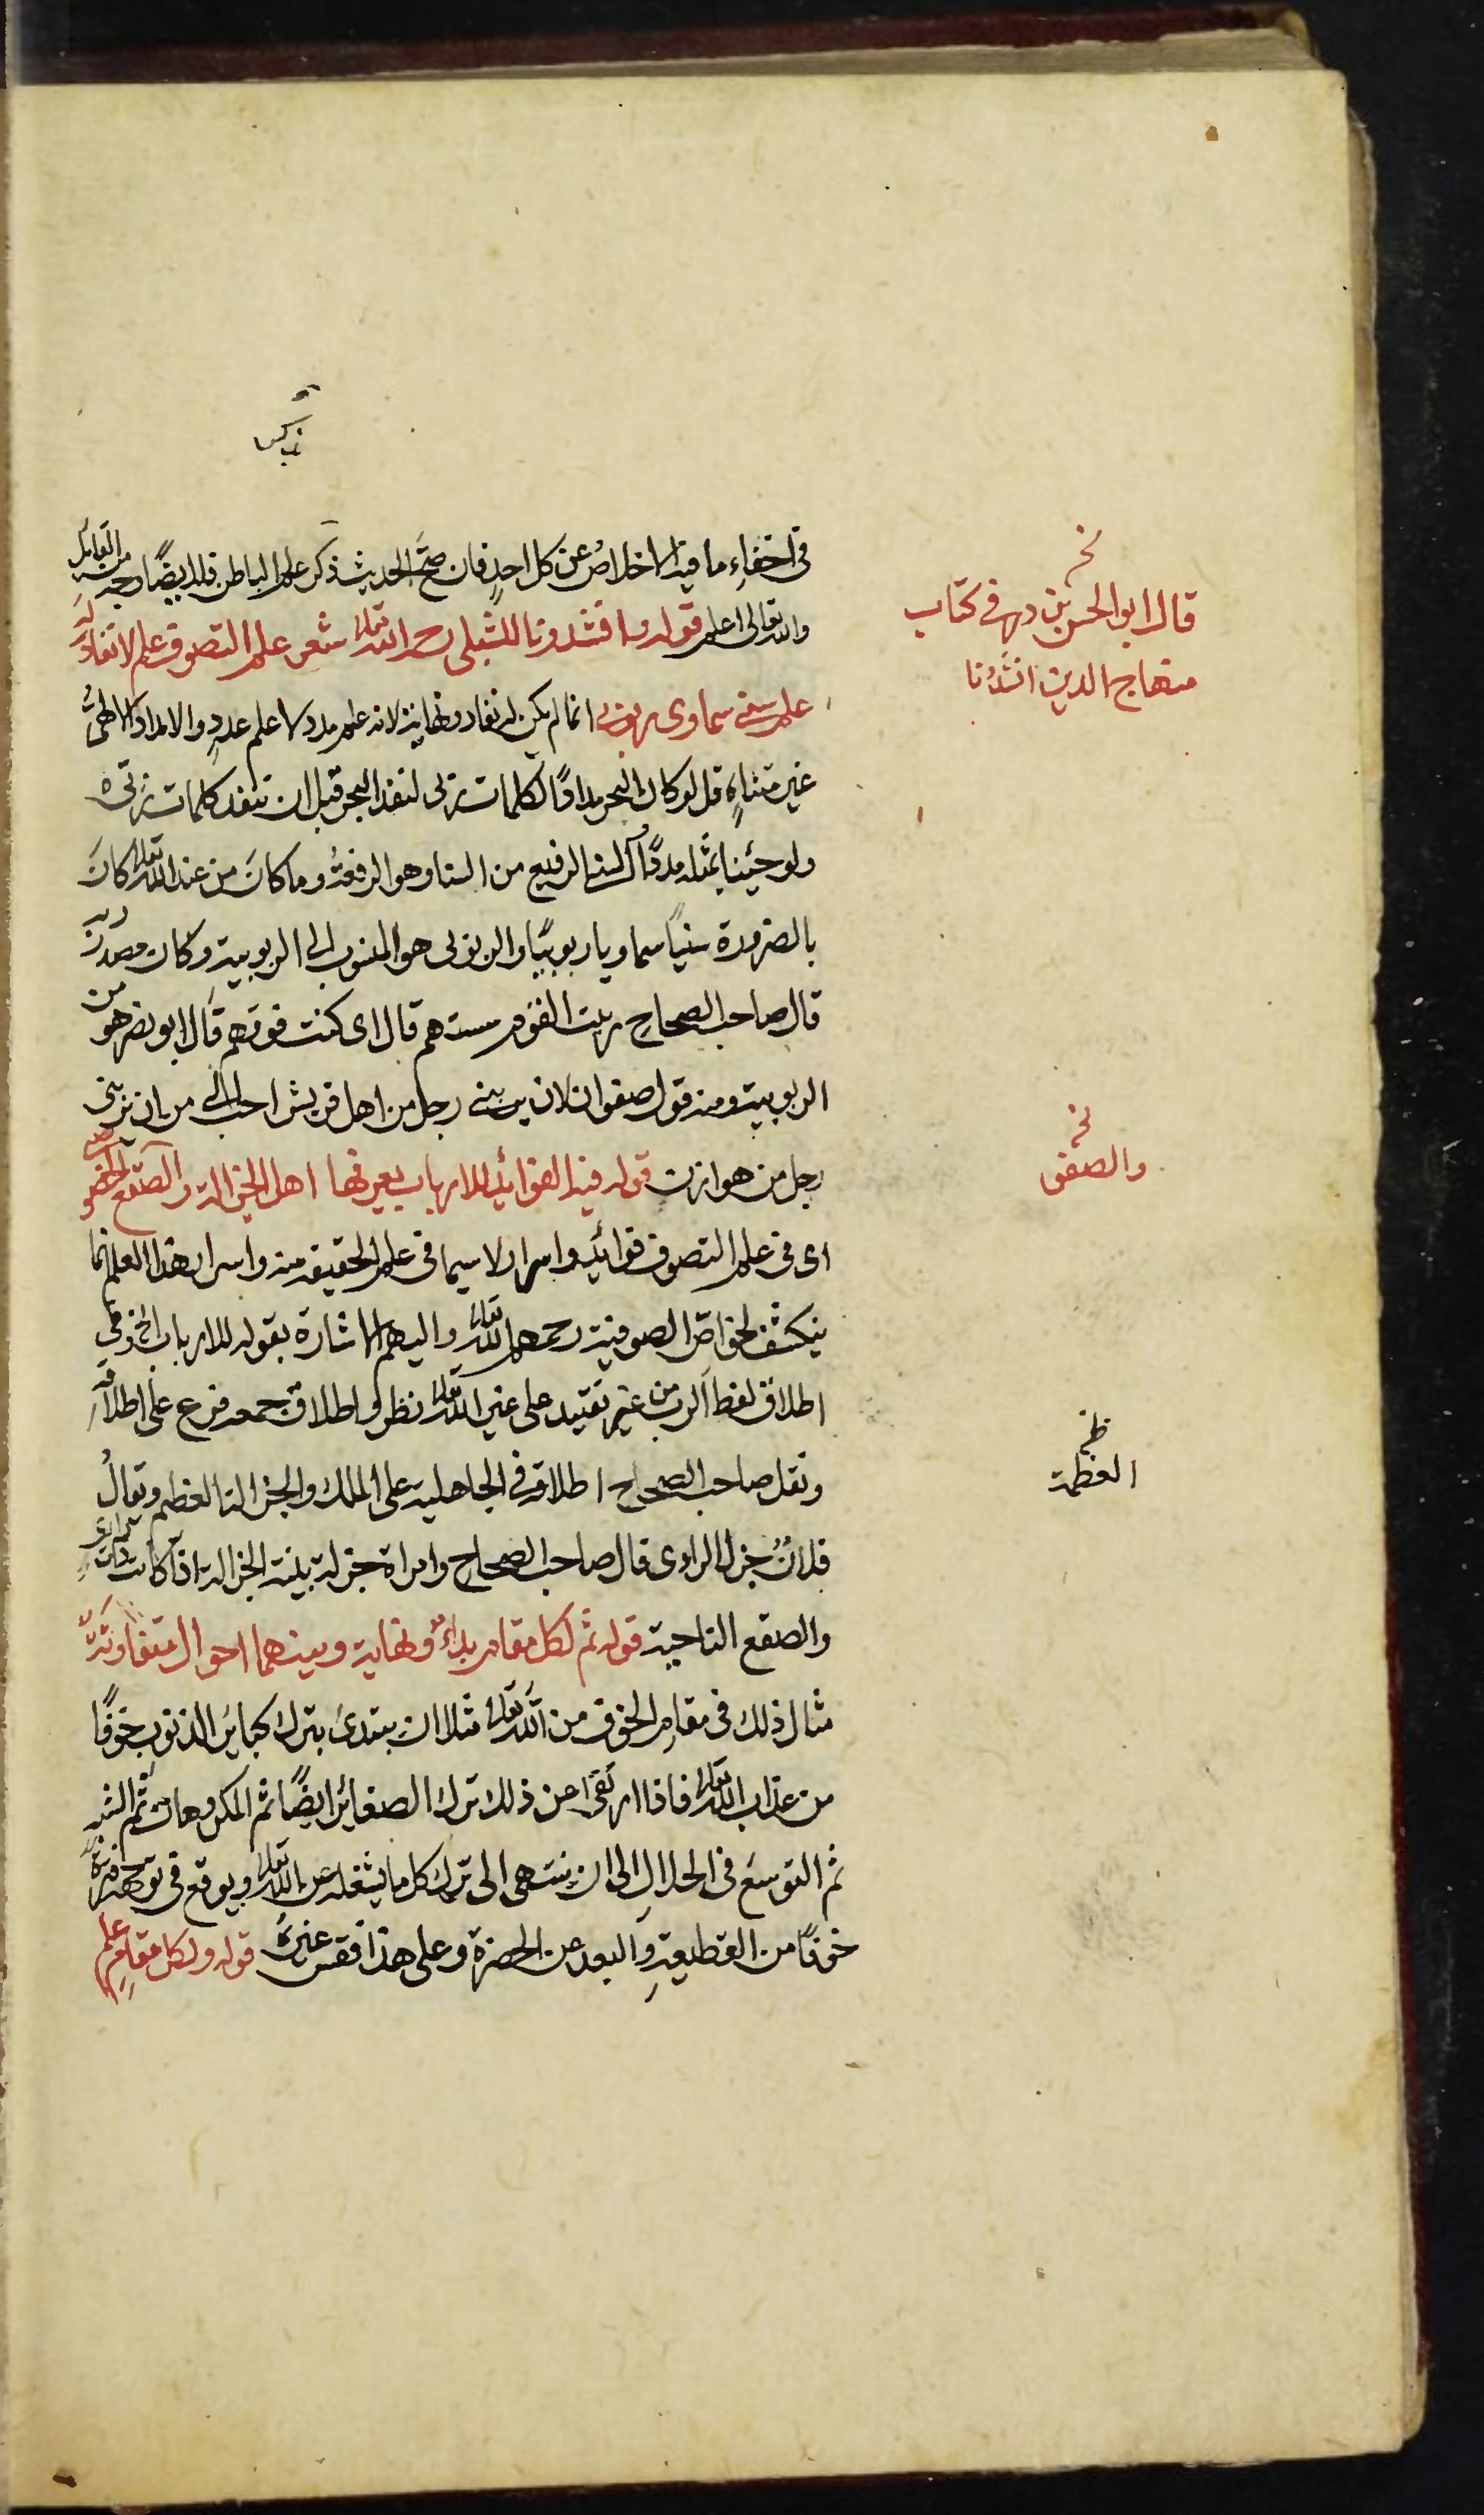 في اخفاء ما فيه الاخلاص عن كل احدٍ فان صحّ الحديث ذكر علم الباطن فله ايضًا وجه من التأييد
والله تعالى اعلم قوله وانشدونا للشبلي رح الله تعالى شعر علم التصوف علم لا نفاد له
علم سني سماوي ربوبي انما لم يكن له نفاد ونهاية لانه علم مدد لا علم عددٍ والامداد الالهيُّ
غير متناهٍ قل لو كان البحر مدادًا لكلمات ربي لنفد البحر قبل ان تنفد كلمات ربي
ولو جئنا بمثله مددًا السني الرفيع من السنا وهو الرفعةُ وما كانَ من عند الله تعالى كانَ
بالضرورة سنيًا سماويا ربوبيًا والربوبي هو المنسوب الى الربوبية وكان مصدر
قال صاحب الصحاح ربيت القوم سستهم قال اي كنت فوقهم قال ابو نصر هو من
الربوبية ومنه قول صفوان لان يربني رجل من اهل قريش احب الي من ان يربني
رجل من هوازن قوله فيه الفوائد للارباب يعرفها اهل الجزالة والصقع الخصوصي
اى في علم التصوف فوائد واسرار لا سيما في علم الحقيقه منه واسرار هذا العلم انما
ينكشف لخواصّ الصوفية رحمهم الله تعالى واليهم الاشارة بقوله للارباب الخ وفي
اطلاق لفظ الرب من غير تقييد على غير الله تعالى نظر واطلاق جمعه فرع على اطلاقه
ونقل صاحب الصحاح اطلاقه في الجاهلية على الملك والجزالة العظم ويقالُ
فلانٌ جزل الراى قال صاحب الصحاح وامراة جزلة بينة الجزالة اذا كانت ذات راى
والصقع الناحية قوله ثم لكل مقام بداءٌ ونهاية وبينهما احوال متفاوتة
مثال ذلك في مقام الخوف من الله تعالى مثلا ان يبتدئ بترك كبائر الذنوب خوفًا
من عذاب الله تعالى فاذا ارتقى عن ذلك ترك الصغائر ايضًا ثم المكروهات ثم الشبه
ثم التوسع في الحلال الى ان ينتهى الى ترك كل ما يشغله عن الله تعالى ويوقع في توجهه فترة
خوفًا من القطيعة والبعد عن الحضرة وعلى هذا فقس غيره قوله ولكل مقام علم
نخـ
قال ابو الحسن بن دهر في كتاب
منهاج الدين انشدُنا
نخـ
والصفق
ظـ
العظمة